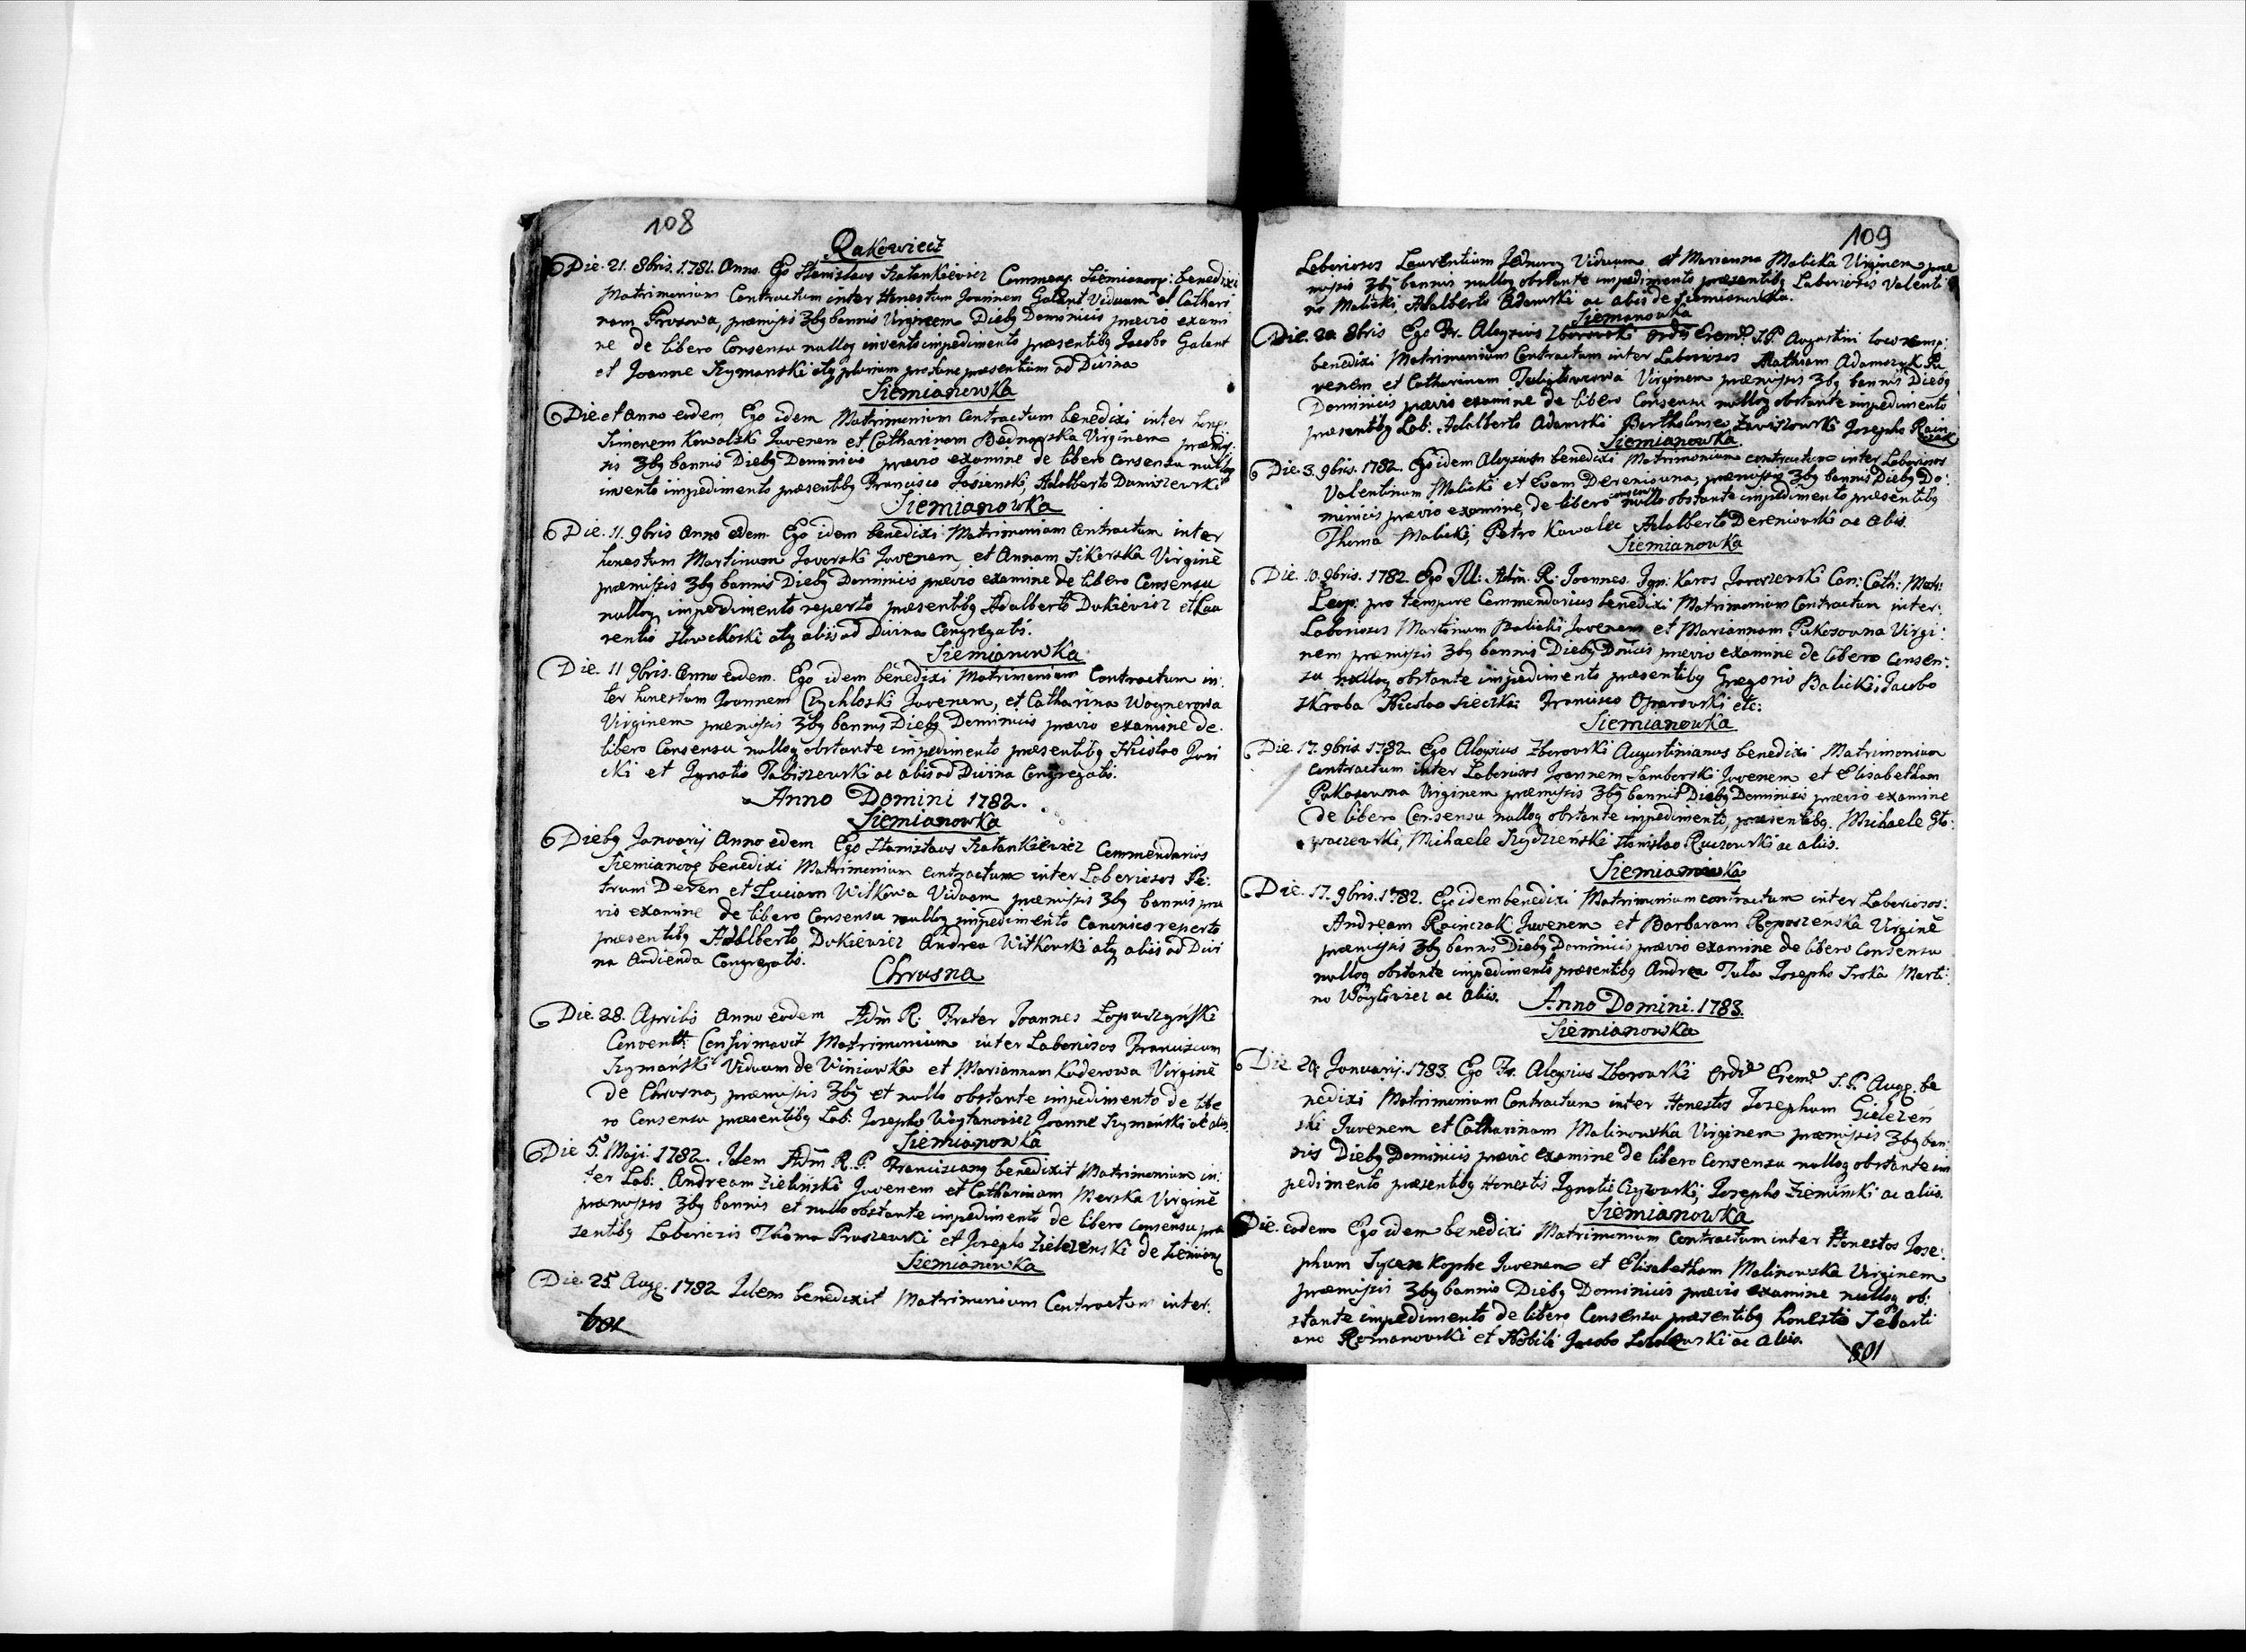 108
Rakowiec
Die. 21. 8bris. 1781. Anno. Ego Stanislaus Szatankiewicz Commen. Siemianov: benedixi
Matrimonium Contractum inter Honestum Joannem Galant Viduum et Cathari
nam Frosowa, præmissis 3bq bannis Virginem Diebq Dominicis prævio exami
ne de libero Consensu nulloq invento impedimento præsentibq Jacobo Galant
et Joanne Szymanski atq plurium præsentium ad Divina
Siemianowka
Die et Anno eodem, Ego idem Matrimonium Contractum benedixi inter hon:
Simonem Kowalski Juvenem et Catharinam Bednarska Virginem præmis
sis 3bq bannis Diebq Dominicis prævio examine de libero Consensu nulloq
invento impedimento præsentibq Francisco Jasienski, Adalberto Daniszewski
Siemianowka
Die. 11. 9bris Anno eodem. Ego idem benedixi Matrimonium Contractum inter
honestum Martinum Jaworski Juvenem, et Annam Sikorska Virginē
præmissis 3bq bannis Diebq Dominicis prævio examine de libero Consensu
nulloq impedimento reperto præsentibq Adalberto Dukiewicz et Lau
rentio atq aliis ad Divina Congregatis.
Siemianowka
Die. 11 9bris. Anno eodem. Ego idem benedixi Matrimonium Contractum in:
ter honestum Joannem Czychloski Juvenem, et Catharina Wagnerowa
Virginem præmissis 3bq bannis Diebq Dominicis prævio examine de
libero Consensu nulloq obstante impedimento præsentibq Nicolao Juri
cki et Ignatio Tabiszewski ac aliis ad Divina Congregatis.
Anno Domini 1782.
Siemianowka
Diebq Januarij Anno eodem Ego Stanislaus Szatankiewicz Commendarius
Siemianov benedixi Matrimonium Contractum inter Laboriosos Pe:
trum Deren et Luciam Witkowa Viduam præmissis 3bq bannis præ
vio examine de libero Consensu nulloq impedimento Canonico reperto
præsentibq Adalberto Dukiewicz Andrea Witkowski atq aliis ad Divi
na Audienda Congregatis.
Chrusna
Die. 28. Aprilis Anno eodem Adm R: Frater Joannes Łopuszyński
Convent: Confirmavit Matrimonium inter Laboriosos Franciscum
Szymański Viduum de Winiawka et Mariannam Kaderowa Virginē
de Chrusna, præmissis 3bq et nullo obstante impedimento de libe
ro Consensu præsentibq Lab: Josepho Woytanowicz Joanne Szymański ac aliis.
Siemianowka
Die 5. Maji. 1782. Idem Adm R. P. Franciscanq benedixit Matrimonium in:
ter Lab: Andream Zielinski Juvenem et Catharinam Merska Virginē
præmissis 3bq bannis et nullo obstante impedimento de libero Consensu præ
sentibq Laboriosis Thoma Pruszewski et Josepho Zielezenski de Siemianq
Siemianowka
Die. 25. Aug. 1782 Idem benedixit Matrimonium Contractum inter.
109
Laboriosos Laurentium Viduum et Marianna Malicka Virginem præ
missis 3bq bannis nulloq obstante impedimento præsentibq Laboriosis Valenti
no Malicki, Adalberto Adamski ac aliis de Siemianowka.
Siemianowka
Die. 20. 8bris Ego Fr. Aloysius Zborowski Ord: Erem: S. P. Augustini
benedixi Matrimonium Contractum inter Laboriosos Mathiam Adamczyk Ju
venem et Catharinam Virginem præmissis 3bq bannis Diebq
Dominicis prævio examine de libero Consensu nulloq obstante impedimento
præsentibq Lab: Adalberto Adamski Bartholomeo Zawiszowski Josepho Rain
czak
Siemianowka.
Die. 3. 9bris. 1782. Ego idem Aloysius benedixi Matrimonium contractum inter Laboriosos
Valentinum Malicki et Evam Dereniowna, præmissis 3bq bannis Diebq Do:
minicis prævio examine, de libero consensu nullo obstante impedimento præsentibq
Thoma Malicki, Petro Kowalec Adalberto Dereniowski ac aliis.
Siemianowka
Die. 10. 9bris. 1782. Ego Ill: Adm. R. Joannes Ign: Karos Jaroszewski Can: Cath: Metr:
Leop: pro tempore Commendarius benedixi Matrimonium Contractum inter:
Laboriosos Martinum Balicki Juvenem et Mariannam Pukosowna Virgi:
nem præmissis 3bq bannis Diebq Doūcis prævio examine de libero Consen:
su nulloq obstante impedimento præsentibq Gregorio Balicki, Jacobo
Skroba Nicolao Sieczka: Francisco Oparowski etc:
Siemianowka
Die 17. 9bris. 1782. Ego Aloysius Zborowski Augustinianus benedixi Matrimonium
contractum inter Laboriosos Joannem Samborski Juvenem et Elisabetham
Pukosowna Virginem præmissis 3bq bannis Diebq Dominicis prævio examine
de libero Consensu nulloq obstante impedimento, præsentibq. Michaele Gło:
waczewski, Michaele Szydzeński Stanislao Ruczowski ac aliis.
Siemianowka
Die. 17. 9bris. 1782. Ego idem benedixi Matrimonium contractum inter Laboriosos:
Andream Rainczak Juvenem et Barbaram Roposzenska Virginē
præmissis 3bq bannis Diebq Dominicis prævio examine de libero Consensu
nulloq obstante impedimento præsentibq Andrea Tula Josepho Sroka Marti:
no Woytowicz ac aliis.
Anno Domini. 1783.
Siemianowka
Die 20. Januarij. 1783. Ego Fr. Aloysius Zborowski Ord: Erem: S. P. Aug. be
nedixi Matrimonium Contractum inter Honestos Josephum Gielezeń
ski Juvenem et Catharinam Malinowska Virginem præmissis 3bq ban:
nis Diebq Dominicis prævio examine de libero Consensu nulloq obstante im
pedimento præsentibq Honestis Ignatii Czyzowski, Josepho Ziemiński ac aliis.
Siemianowka
Die. eodem Ego idem benedixi Matrimonium Contractum inter Honestos Jose:
phum Juvenem et Elisabetham Malinowska Virginem
præmissis 3bq bannis Diebq Dominicis prævio examine nulloq ob:
stante impedimento de libero Consensu præsentibq honesto Sebasti
ano Romanowski et Nobili Jacobo ac aliis.
801